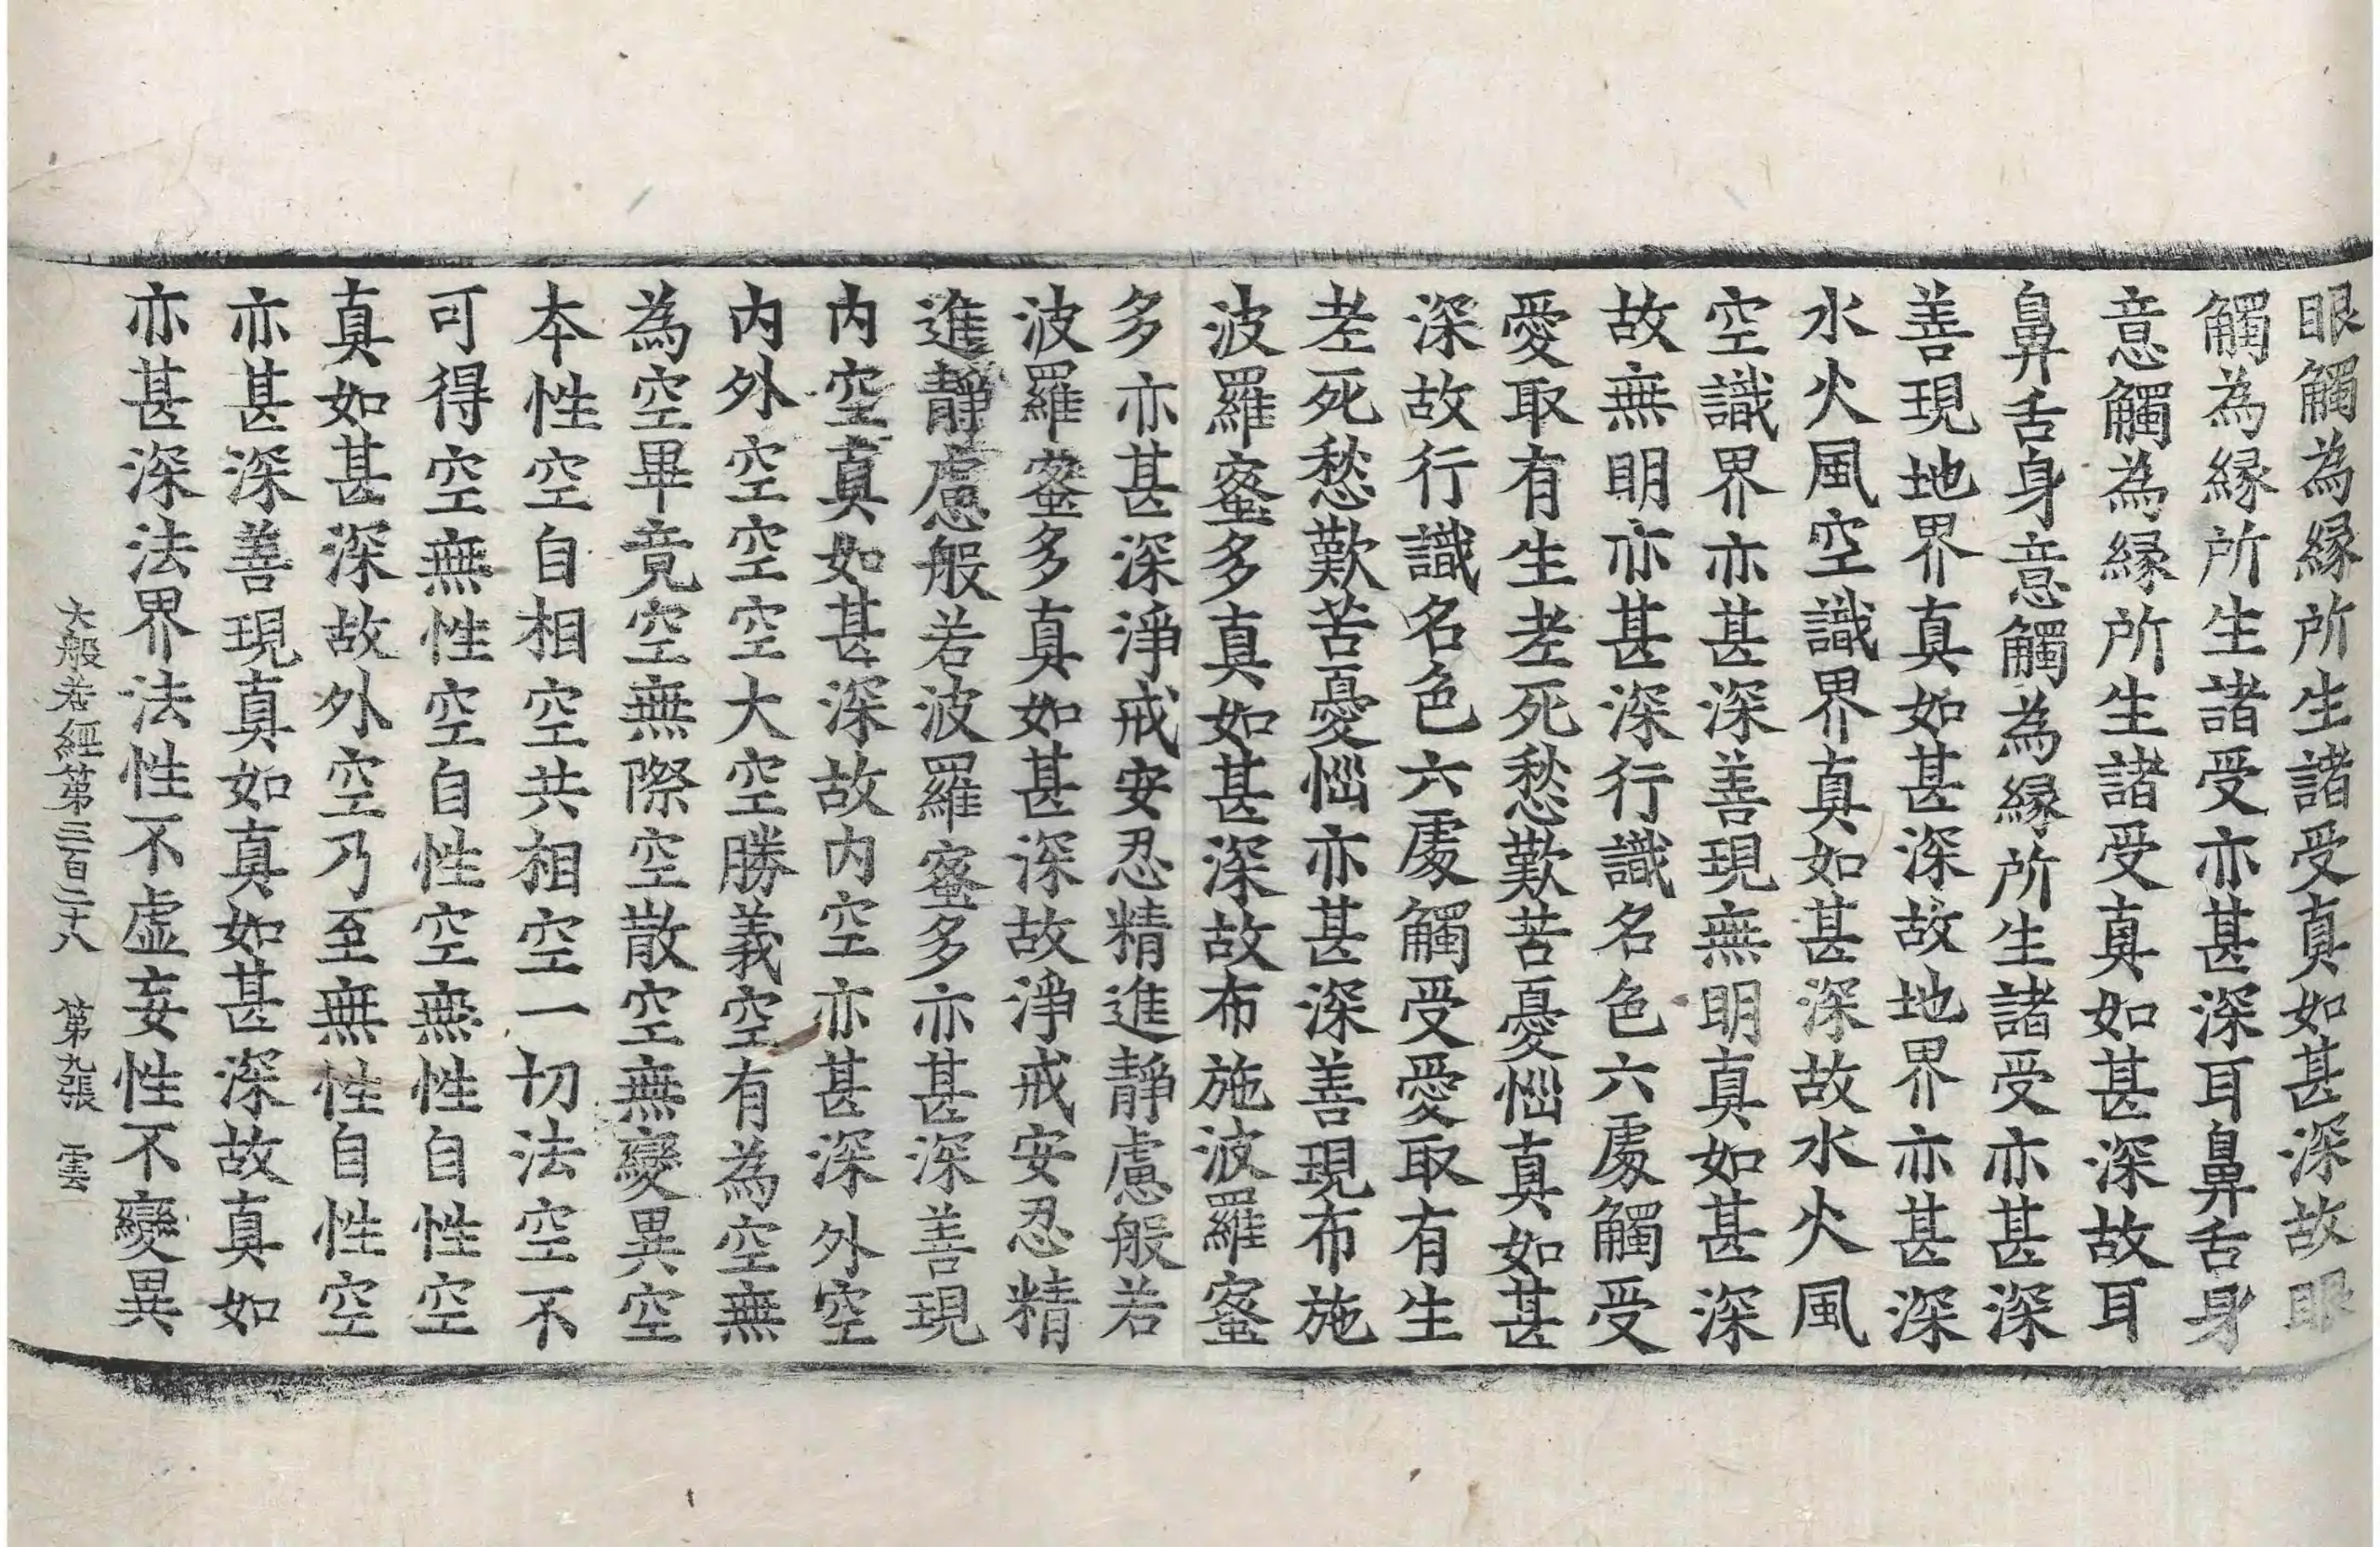 眼觸為縁所生諸受真如甚深故眼
觸為縁所生諸受亦甚深耳鼻舌身
意觸為縁所生諸受真如甚深故耳
鼻舌身意觸為縁所生諸受亦甚深
善現地界真如甚深故地界亦甚深
水火風空識界真如甚深故水火風
空識界亦甚深善現無明真如甚深
故無明亦甚深行識名色六處觸受
愛取有生老死愁歎苦憂惱真如甚
深故行識名色六處觸受愛取有生
老死愁歎苦憂惱亦甚深善現布施
波羅蜜多真如甚深故布施波羅蜜
多亦甚深淨戒安忍精進靜慮般若
波羅蜜多真如甚深故淨戒安忍精
進靜慮般若波羅蜜多亦甚深善現
内空真如甚深故内空亦甚深外空
内外空空空大空勝義空有為空無
為空畢竟空無際空散空無變異空
本性空自相空共相空一切法空不
可得空無性空自性空無性自性空
真如甚深故外空乃至無性自性空
亦甚深善現真如真如甚深故真如
亦甚深法界法性不虛妄性不變異
大般若經第三百二十八 第九張 雲